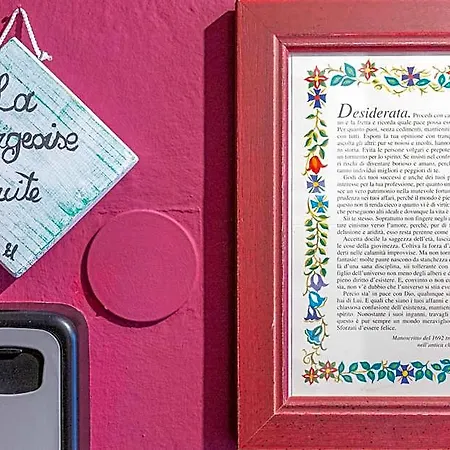 La
rgeoise
uite
Desiderata. Procedi con ca
no e la fretta e ricorda quale pace possa esse
Per quanto puoi, senza cedimenti, mantieni
con tutti. Esponi la tua opinione con tranq
ascolta gli altri: pur se noiosi e incolti, hanno
ro storia. Evita le persone volgari e prepote
un tormento per lo spirito. Se insisti nel confro
ri rischi di diventare borioso e amaro, perché
ranno individui migliori e peggiori di te.
Godi dei tuoi successi e anche dei tuoi p
interesse per la tua professione, per quanto um
see un vero patrimonio nella mutevole fortuna
prudenza nei tuoi affari, perché il mondo è pie
questo non ti renda cieco a quanto vi è di virtù:
che perseguono alti ideali e dovunque la vita è
Sii te stesso. Soprattutto non fingere negli a
tare cinismo verso l'amore, perché, pur di
delusione e aridità, esso resta perenne come
Accetta docile la saggezza dell'età, lascia
le cose della giovinezza. Coltiva la forza d'
derti nelle calamità improvvise. Ma non torm
fantasie: molte paure nascono da stanchezza e
là d'una sana disciplina, sii tollerante con
figlio dell'universo non meno degli alberi e d
pieno diritto d'esistere. E, convinto o non co
sia, non v'è dubbio che l'universo si stia evo
Perciò sta' in pace con Dio, qualunque si
hai di Lui. E quali che siano i tuoi affanni e
chiassosa confusione dell'esistenza, mantien
spirito. Nonostante i suoi inganni, travagli
questo è pur sempre un mondo meraviglioso.
Sforzati d'essere felice.
Manoscritto del 1692 tro
nell'antica ch